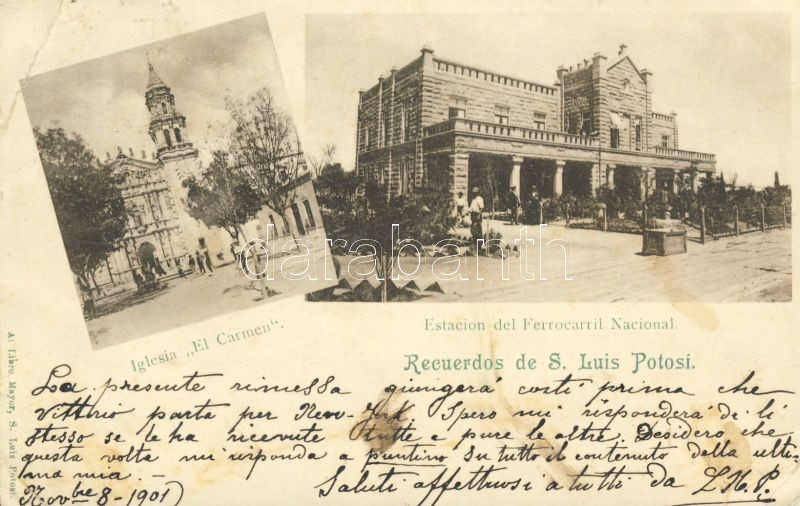 Iglesia „El Carmen“.
Estacion del Ferrocarril Nacional.
Recuerdos de S. Luis Potosí.
Al Libro Mayor, S. Luis Potosi
darabanth
La presente rimessa giungerá costì prima che
Vittorio parta per New-York. Spero mi risponderá de li
stesso se le ha ricevute tutte e pure le altre. Desidero che
questa volta mi risponda a puntino su tutto il contenuto della ulti-
ma mia.
Novbre 8-1901) Saluti affettuosi a tutti da